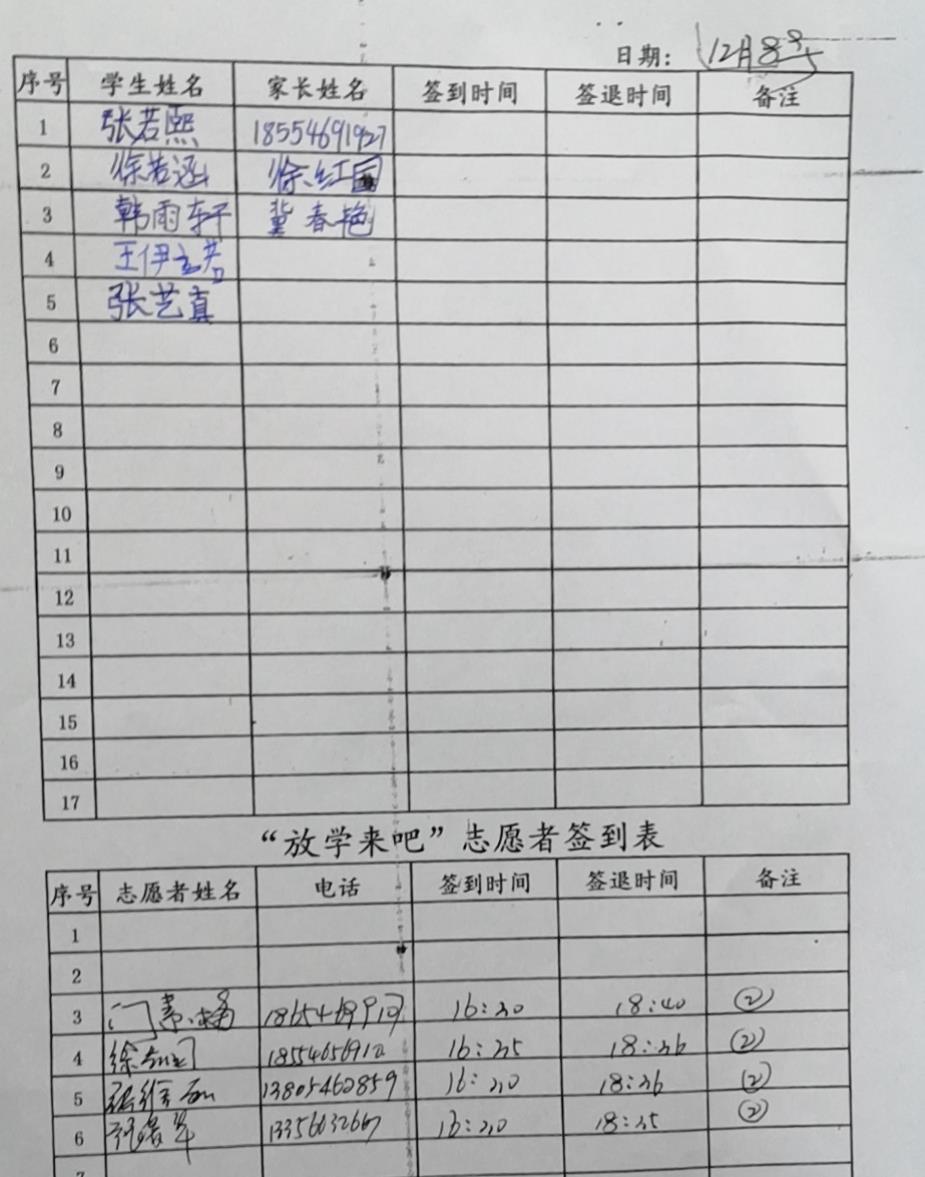 日期: 12月8号
序号 学生姓名 家长姓名 签到时间 签退时间 备注
1 张若熙 18554691927
2 徐若涵 徐红国
3 韩雨轩 冀春艳
4 王伊诺
5 张艺真
6
7
8
9
10
11
12
13
14
15
16
17
“放学来吧”志愿者签到表
序号 志愿者姓名 电话 签到时间 签退时间 备注
1
2
3 16:30 18:40 ②
4 16:35 18:36 ②
5 13805462859 16:30 18:36 ②
6 16:30 18:35 ②